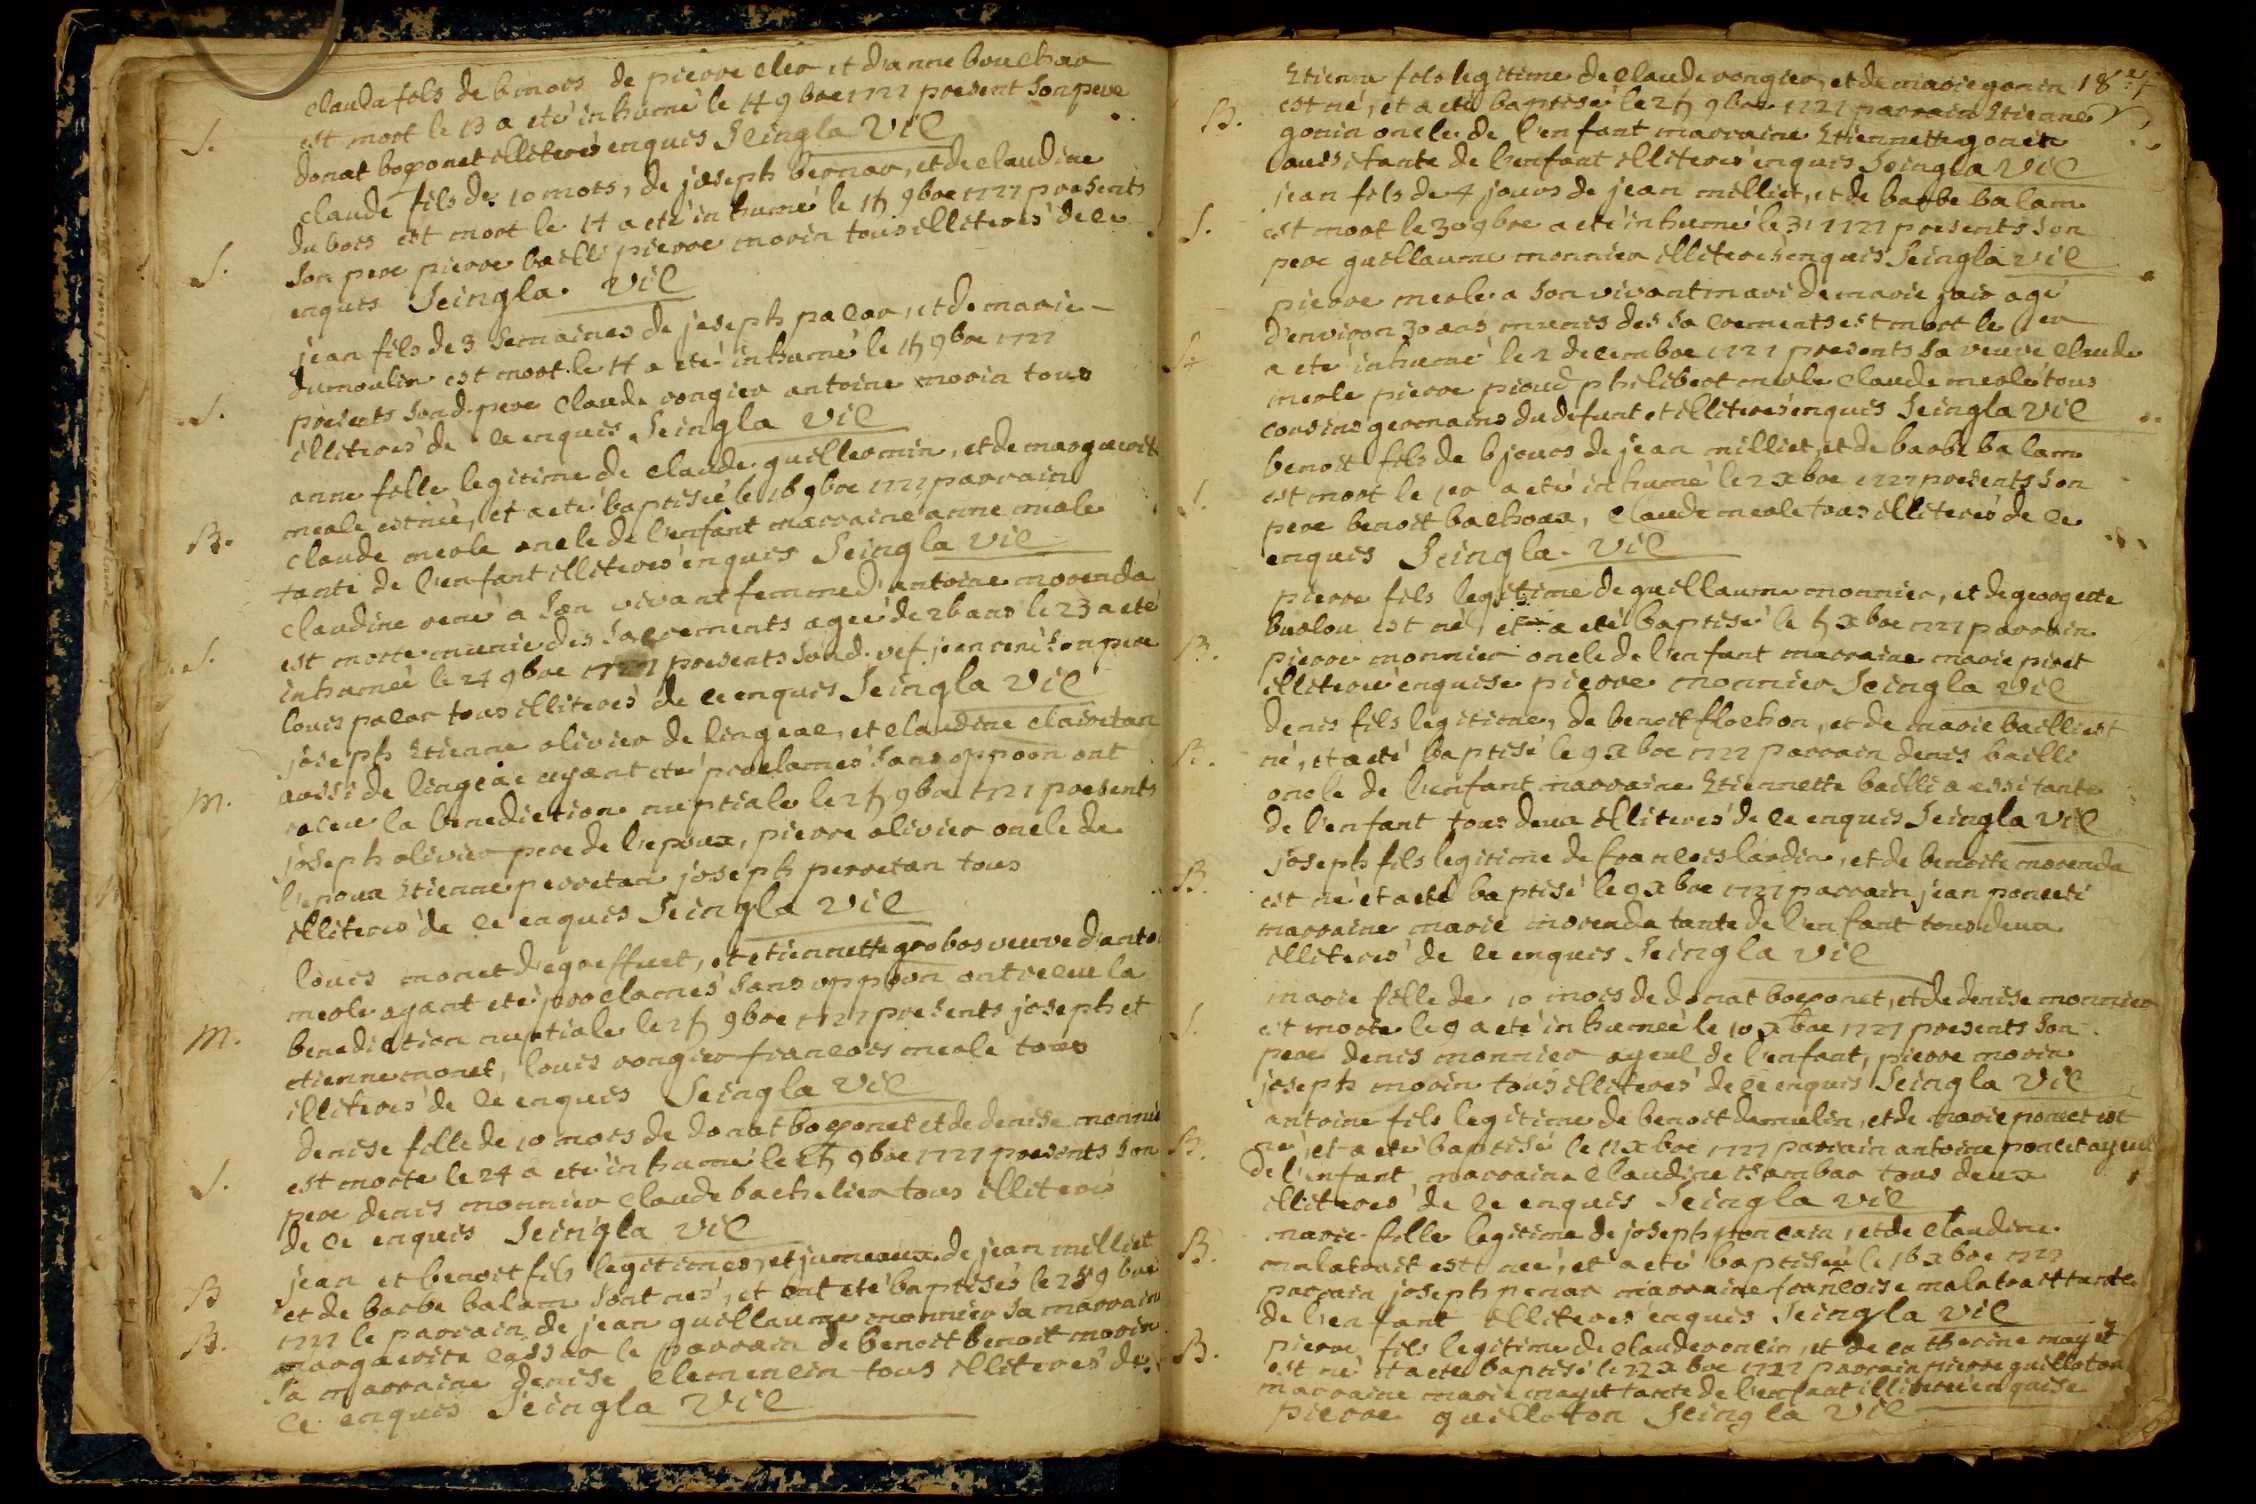 clauda fils de 6 mois de pierre cler et d'anne bouchar
S. est mort le 13 a eté inhumé le 14 9bre 1727 present son pere
donat boponet illiterés enquis Seingla Vil
claude fils de 10 mois, de joseph bernar, et de claudine
dubois est mort le 14 a eté inhumé le 15 9bre 1727 presents
S. son pere pierre bailli pierre morin tous illiterés de ce
enquis Seingla Vil
jean fils de 3 semaines de joseph pacar, et de marie
dumoulin est mort le 14 a eté inhumé le 15 9bre 1727
S. presents sond. pere claude rongier antoine morin tous
illiterés de ce enquis Seingla Vil
anne fille legitime de claude guillermin, et de marguerite
merle est née, et a eté baptisée le 16 9bre 1727 parrain
B. claude merle oncle de l'enfant marraine anne merle
tante de l'enfant illiterés enquis Seingla Vil
claudine rené a son vivant femme d'antoine morenda
est morte munie des sacrements agée de 26 ans le 23 a eté
S. inhumée le 24 9bre 1727 presents sond. vef jean rené son pere
louis pacar tous illiterés de ce enquis Seingla Vil
joseph Etienne olivier de lingeac, et claudine clairetan
aussi de lingeac ayant eté proclamés sans oppoon ont
M. receu la benediction nuptiale le 25 9bre 1727 presents
joseph olivier pere de l'epoux, pierre olivier oncle de
l'epoux Etienne perretan joseph perretan tous
illiterés de ce enquis Seingla Vil
louis monet d'egreffuet, et etiennette grobos veuve d'anto
merle ayant eté proclamés sans oppoon ont receu la
M. benediction nuptiale le 25 9bre 1727 presents joseph et
etienne monet, louis rongier francois merle tous
illiterés de ce enquis Seingla Vil
denise fille de 10 mois de donat boponet et de denise monnie
est morte le 24 a eté inhumé le 25 9bre 1727 presents son
S. pere denis monnier claude bachelier tous illiterés
de ce enquis Seingla Vil
jean et benoit fils legitimes, et jumeaux de jean milliet
B et de barbe balam sont nés, et ont eté baptisés le 25 9bre
1727 le parrain de jean guillaume monnier sa marraine
B. marguerite cassar le parrain de benoit benoit morin
sa marraine denise clemencin tous illiterés de
ce enquis Seingla Vil
Etienne fils legitime de claude rongier, et de marie gonin 18
est né, et a eté baptisé le 25 9bre 1727 parrain Etienne
B. gonin oncle de l'enfant marraine Etiennette gonin
aussi tante de l'enfant illiterés enquis Seingla Vil
jean fils de 4 jours de jean milliet, et de barbe balam
S. est mort le 30 9bre a eté inhumé le 31 1727 presents son
pere guillaume monnier illiterés enquis Seingla Vil
pierre merle a son vivant mari de marie jair agé
d'environ 30 ans munis des sacrements est mort le 1er
S. a eté inhumé le 2 decembre 1727 presents sa veuve claude
merle pierre pioud philibert merle claude merle tous
cousins germains du defunt et illiterés enquis Seingla Vil
benoit fils de 6 jours de jean milliet, et de barbe balam
S. est mort le 1er a eté inhumé le 2 xbre 1727 presents son
pere benoit bachoux, claude merle tous illiterés de ce
enquis Seingla Vil
pierre fils legitime de guillaume monnier, et de georgette
burlou est né, et a eté baptisé le 5 xbre 1727 parrain
B. pierre monnier oncle de l'enfant marraine marie piret
illiterée enquise pierre monnier Seingla Vil
denis fils legitime, de benoit flochon, et de marie bailli est
B. né, et a eté baptisé le 9 xbre 1727 parrain denis bailli
oncle de l'enfant marraine Etiennette bailli aussi tante
de l'enfant tous deux illiterés de ce enquis Seingla Vil
joseph fils legitime de francois lardin, et de benoite morenda
B. est né et a eté baptisé le 9 xbre 1727 parrain jean ponceti
marraine marie morenda tante de l'enfant tous deux
illiterés de ce enquis Seingla Vil
marie fille de 10 mois de donat boponet, et de denise monnier
S. est morte le 9 a eté inhumée le 10 xbre 1727 presents son
pere denis monnier ayeul de l'enfant, pierre morin
joseph morin tous illiterés de ce enquis Seingla Vil
antoine fils legitime de benoit demulin, et de marie poncet est
B. né, et a eté baptisé le 11 xbre 1727 parrain antoine poncet ayeul
de l'enfant, marraine claudine chambar tous deux
illiterés de ce enquis Seingla Vil
marie fille legitime de joseph moncain, et de claudine
B. malatrait est née, et a eté baptisée le 16 xbre 1727
parrain joseph penar marraine francoise malatrait tante
de l'enfant illiterés enquis Seingla Vil
B. pierre fils legitime de claude roncin, et de catherine mayet
est né et a eté baptisé le 22 xbre 1727 parrain pierre guilloton
marraine marie mayet tante de l'enfant illiterée enquise
pierre guilloton Seingla Vil